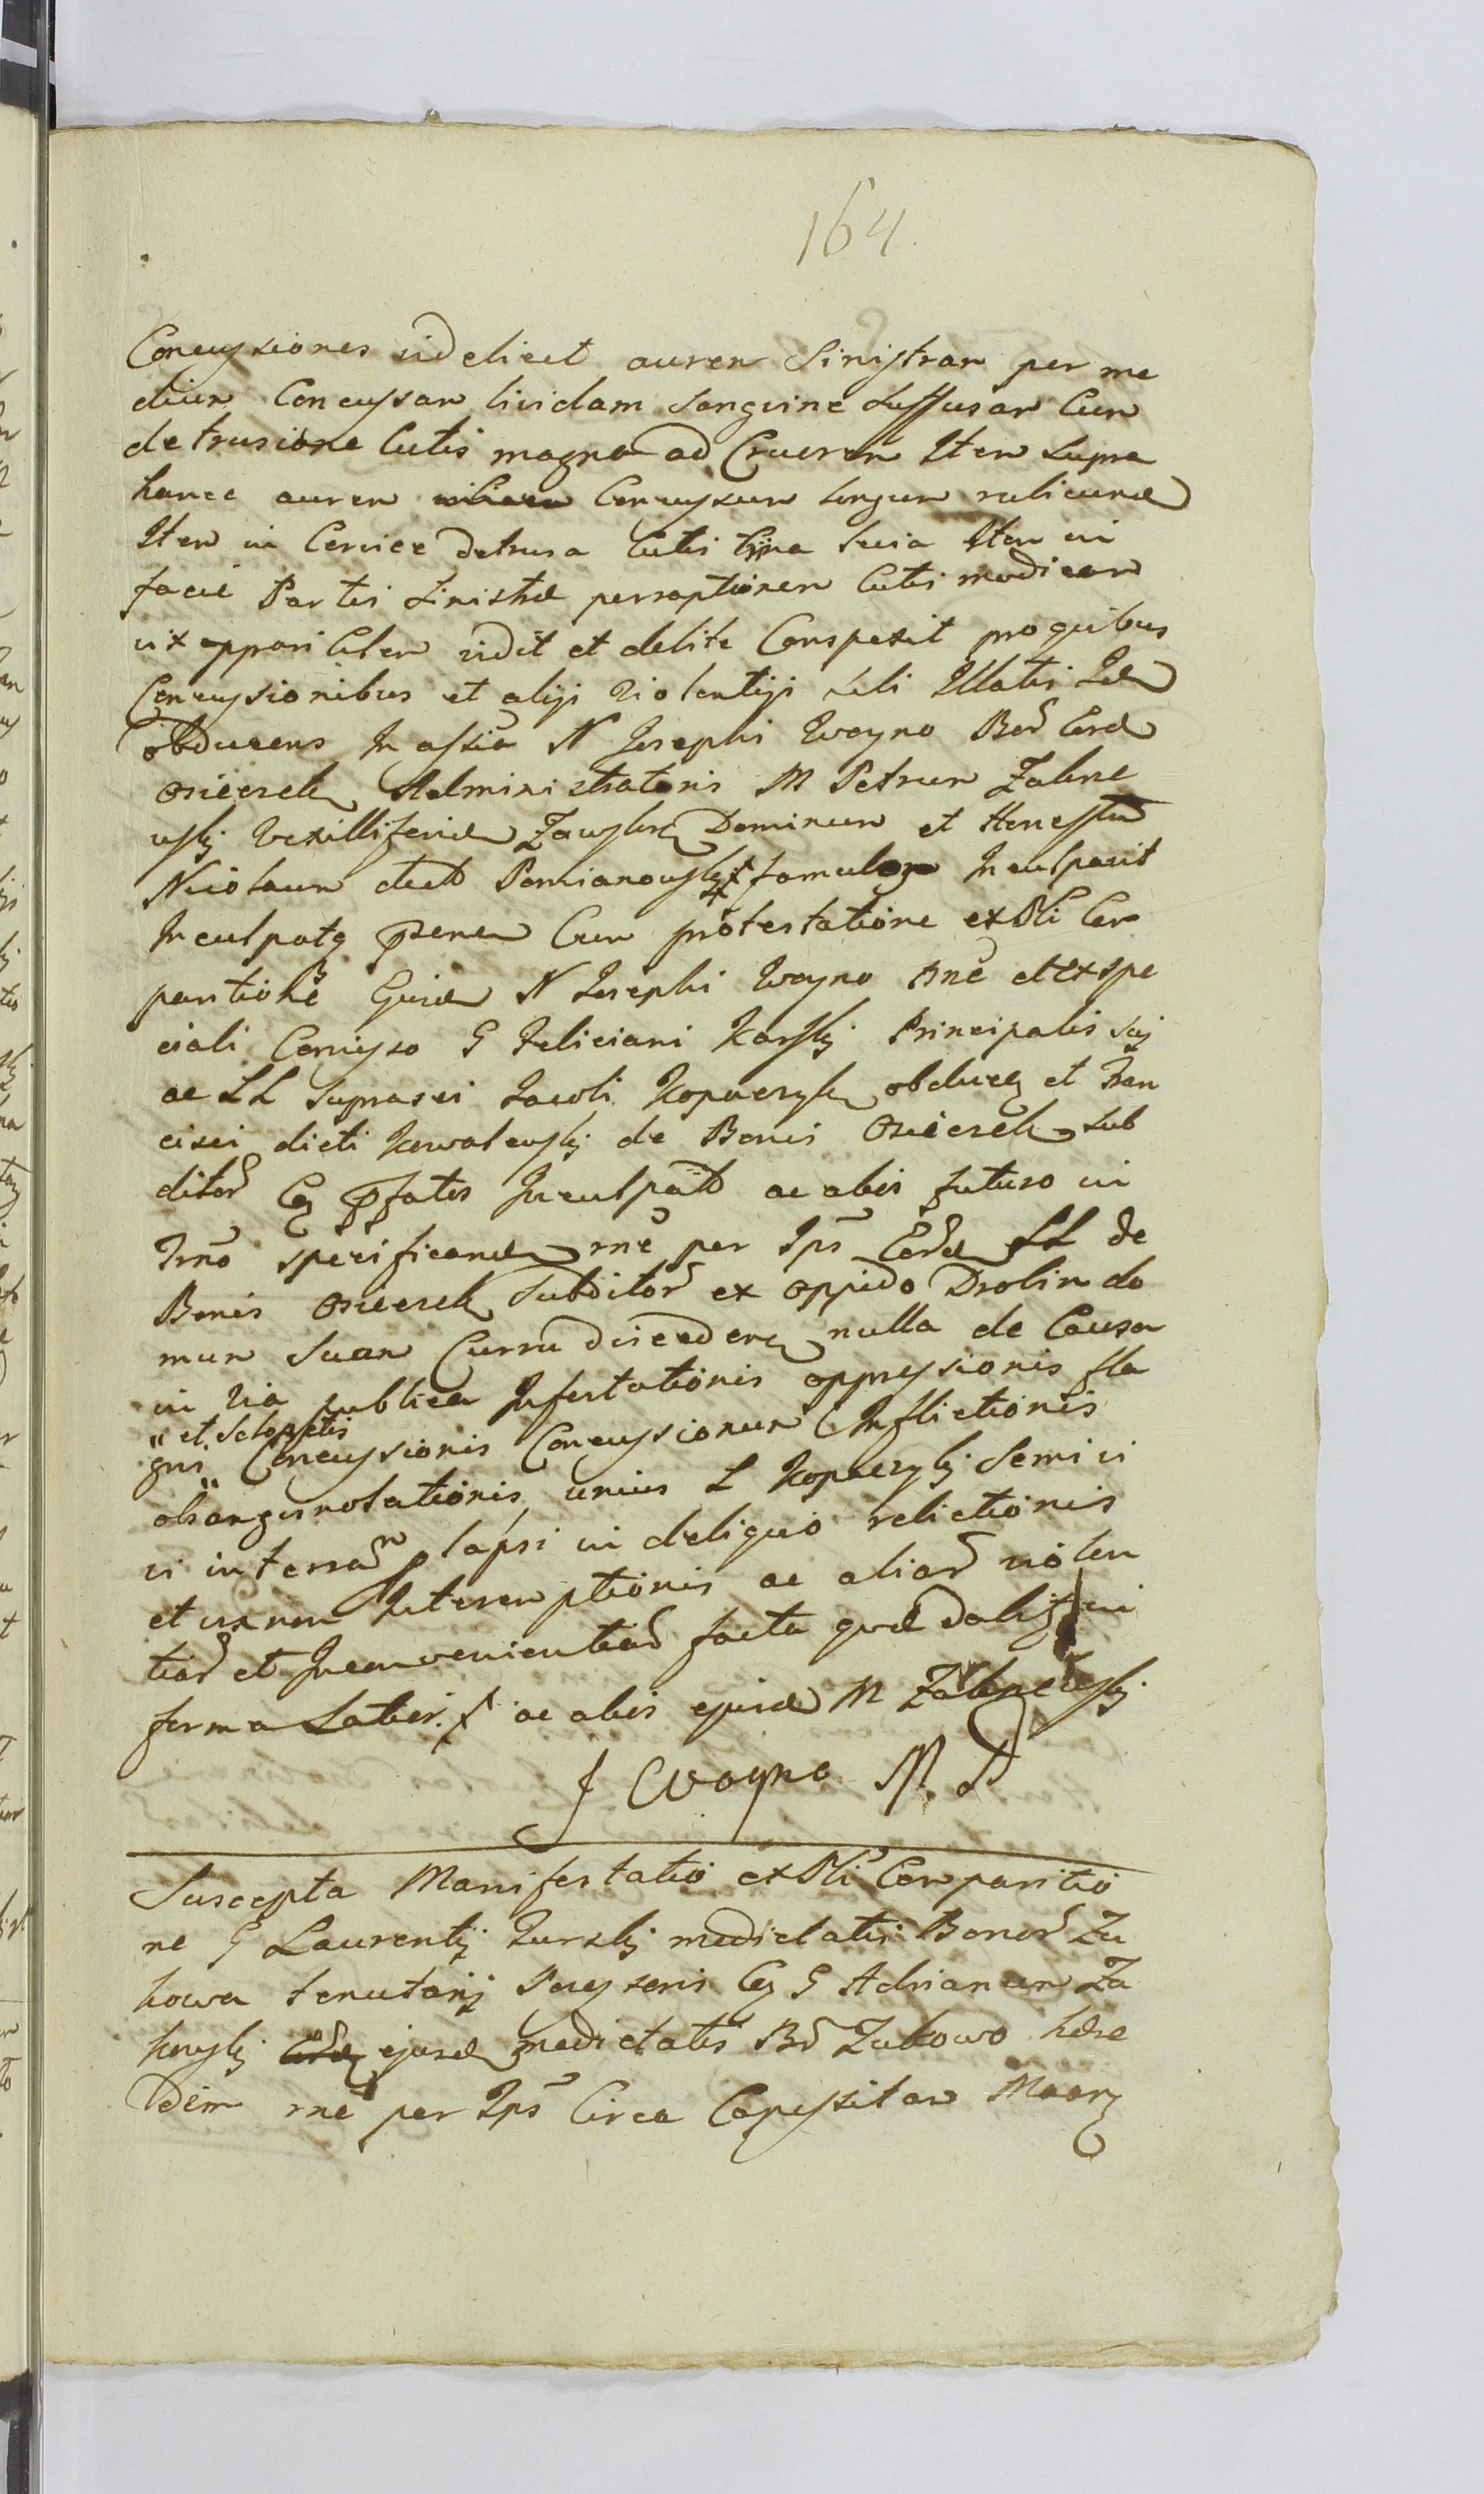 164.
Concussiones videlicet aurem Sinistram per me
dium Concussam lividam Sanguine Suffusam Cum
detrusione Cutis magna ad Cruorem Item Supra
hance aurem Concussum longum rubicund
Item in Cervice detrusa Cutis Item in
facie Partis Sinistræ perraptionem Cutis modicam
vix apparibilem vidit et debite Conspexit pro quibus
Concussionibus et alijs Violentijs Sibi Illatis Id
obducens In assia N Josephi Woyno Bod Eord
Osieczek Administratoris M Petrum Zabne
uskj Vexilliferid Zawskr Dominum et Honestu
Nicolaum dict Pomianowskj famulos Inculpavit
Inculpatq Cum protestatione ex Obli Com
paritione Ejusd N Josephi Woyno Nne et ex spe
ciali Comisso G Feliciani Karskj Principalis sui
ac LL Suprasci Jacobi Kopaczyk obducen et Fran
cisci dicti Kowalewskj de Bonis Osieczek Sub
ditor Cq pfatos Inculpat ac alios futuro in
Trno specificand rne per Ips Eord LL de
Bonis Osieczek Subditor ex oppido Drobin do
mum Suam Curru discedenq nulla de Causa
in via publica Infestationis oppressionis fla
" et Sclopetis
gris " Concussionis Concussionum Inflictionis
obsangvinolationis unius L Kopaczykj Semivi
vi in terram plapsi in deliquio relictionis
et Interemptionis ac aliar violen
tiar et Inconvenientiar facta qvæ in
forma Latiori ac alios ejusd M Zabnewskj
J Woyno M. P

Suscepta Manifestatio ex Obli Comparitio
ne G Laurentij Turskj medietatis Bonor Zu
kowa tenutarij Possessoris Cq G Adrianum Zu
kowskj ejusd medietatis Bd Zukowo hære
dem rne per Ips Circa Capessitam